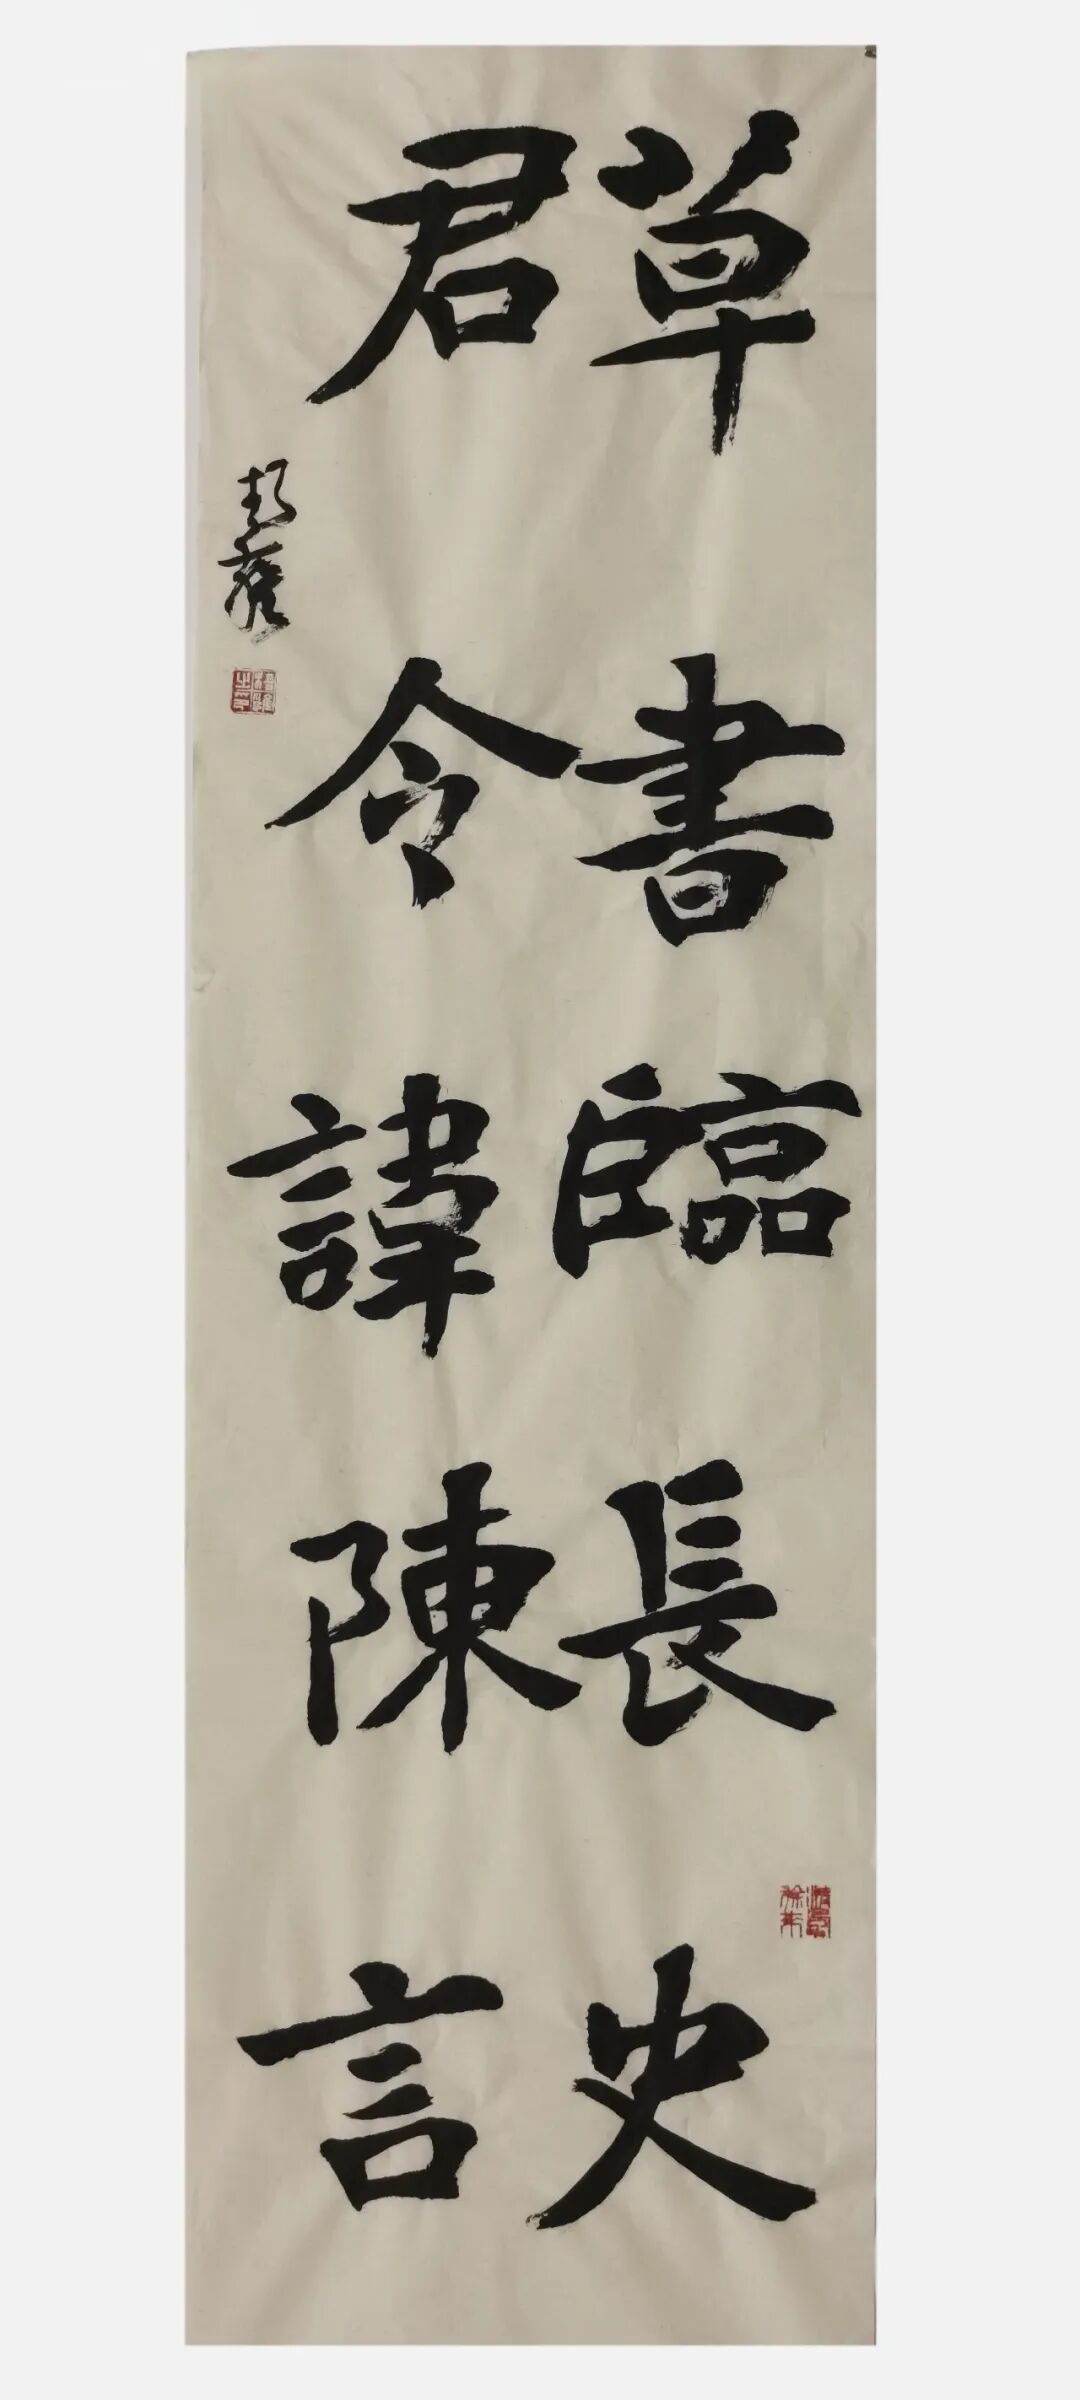 草書臨長史
君令諱陳言